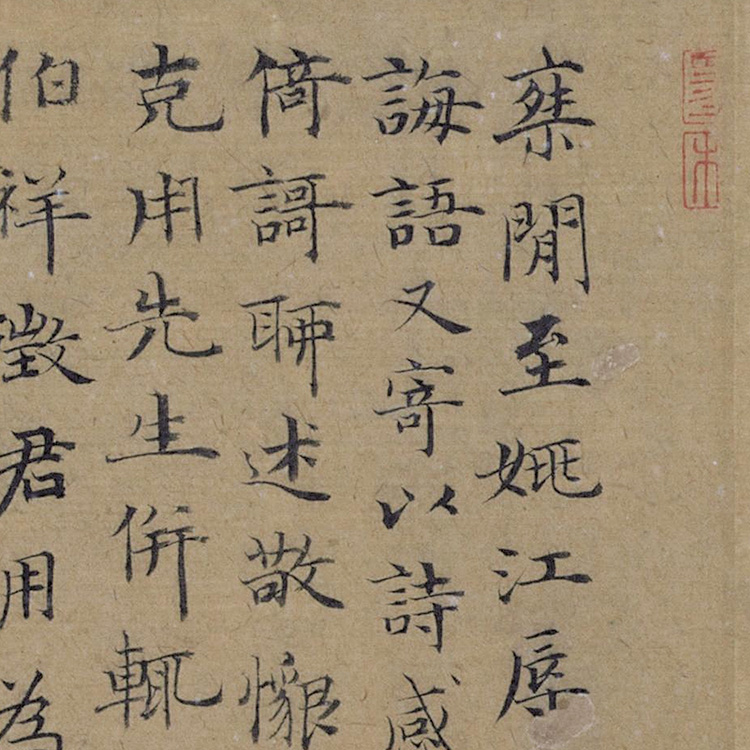 椉閒至姚江辱
誨語又寄以詩感
倚謌聊述敬懇
克用先生併輒
伯祥徵君用為